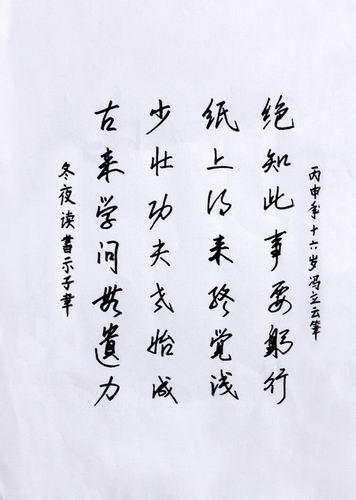 冬夜读書示子聿
古来学问無遺力
少壮功夫老始成
纸上得来终觉浅
绝知此事要躬行
丙申年十六岁冯立云筆